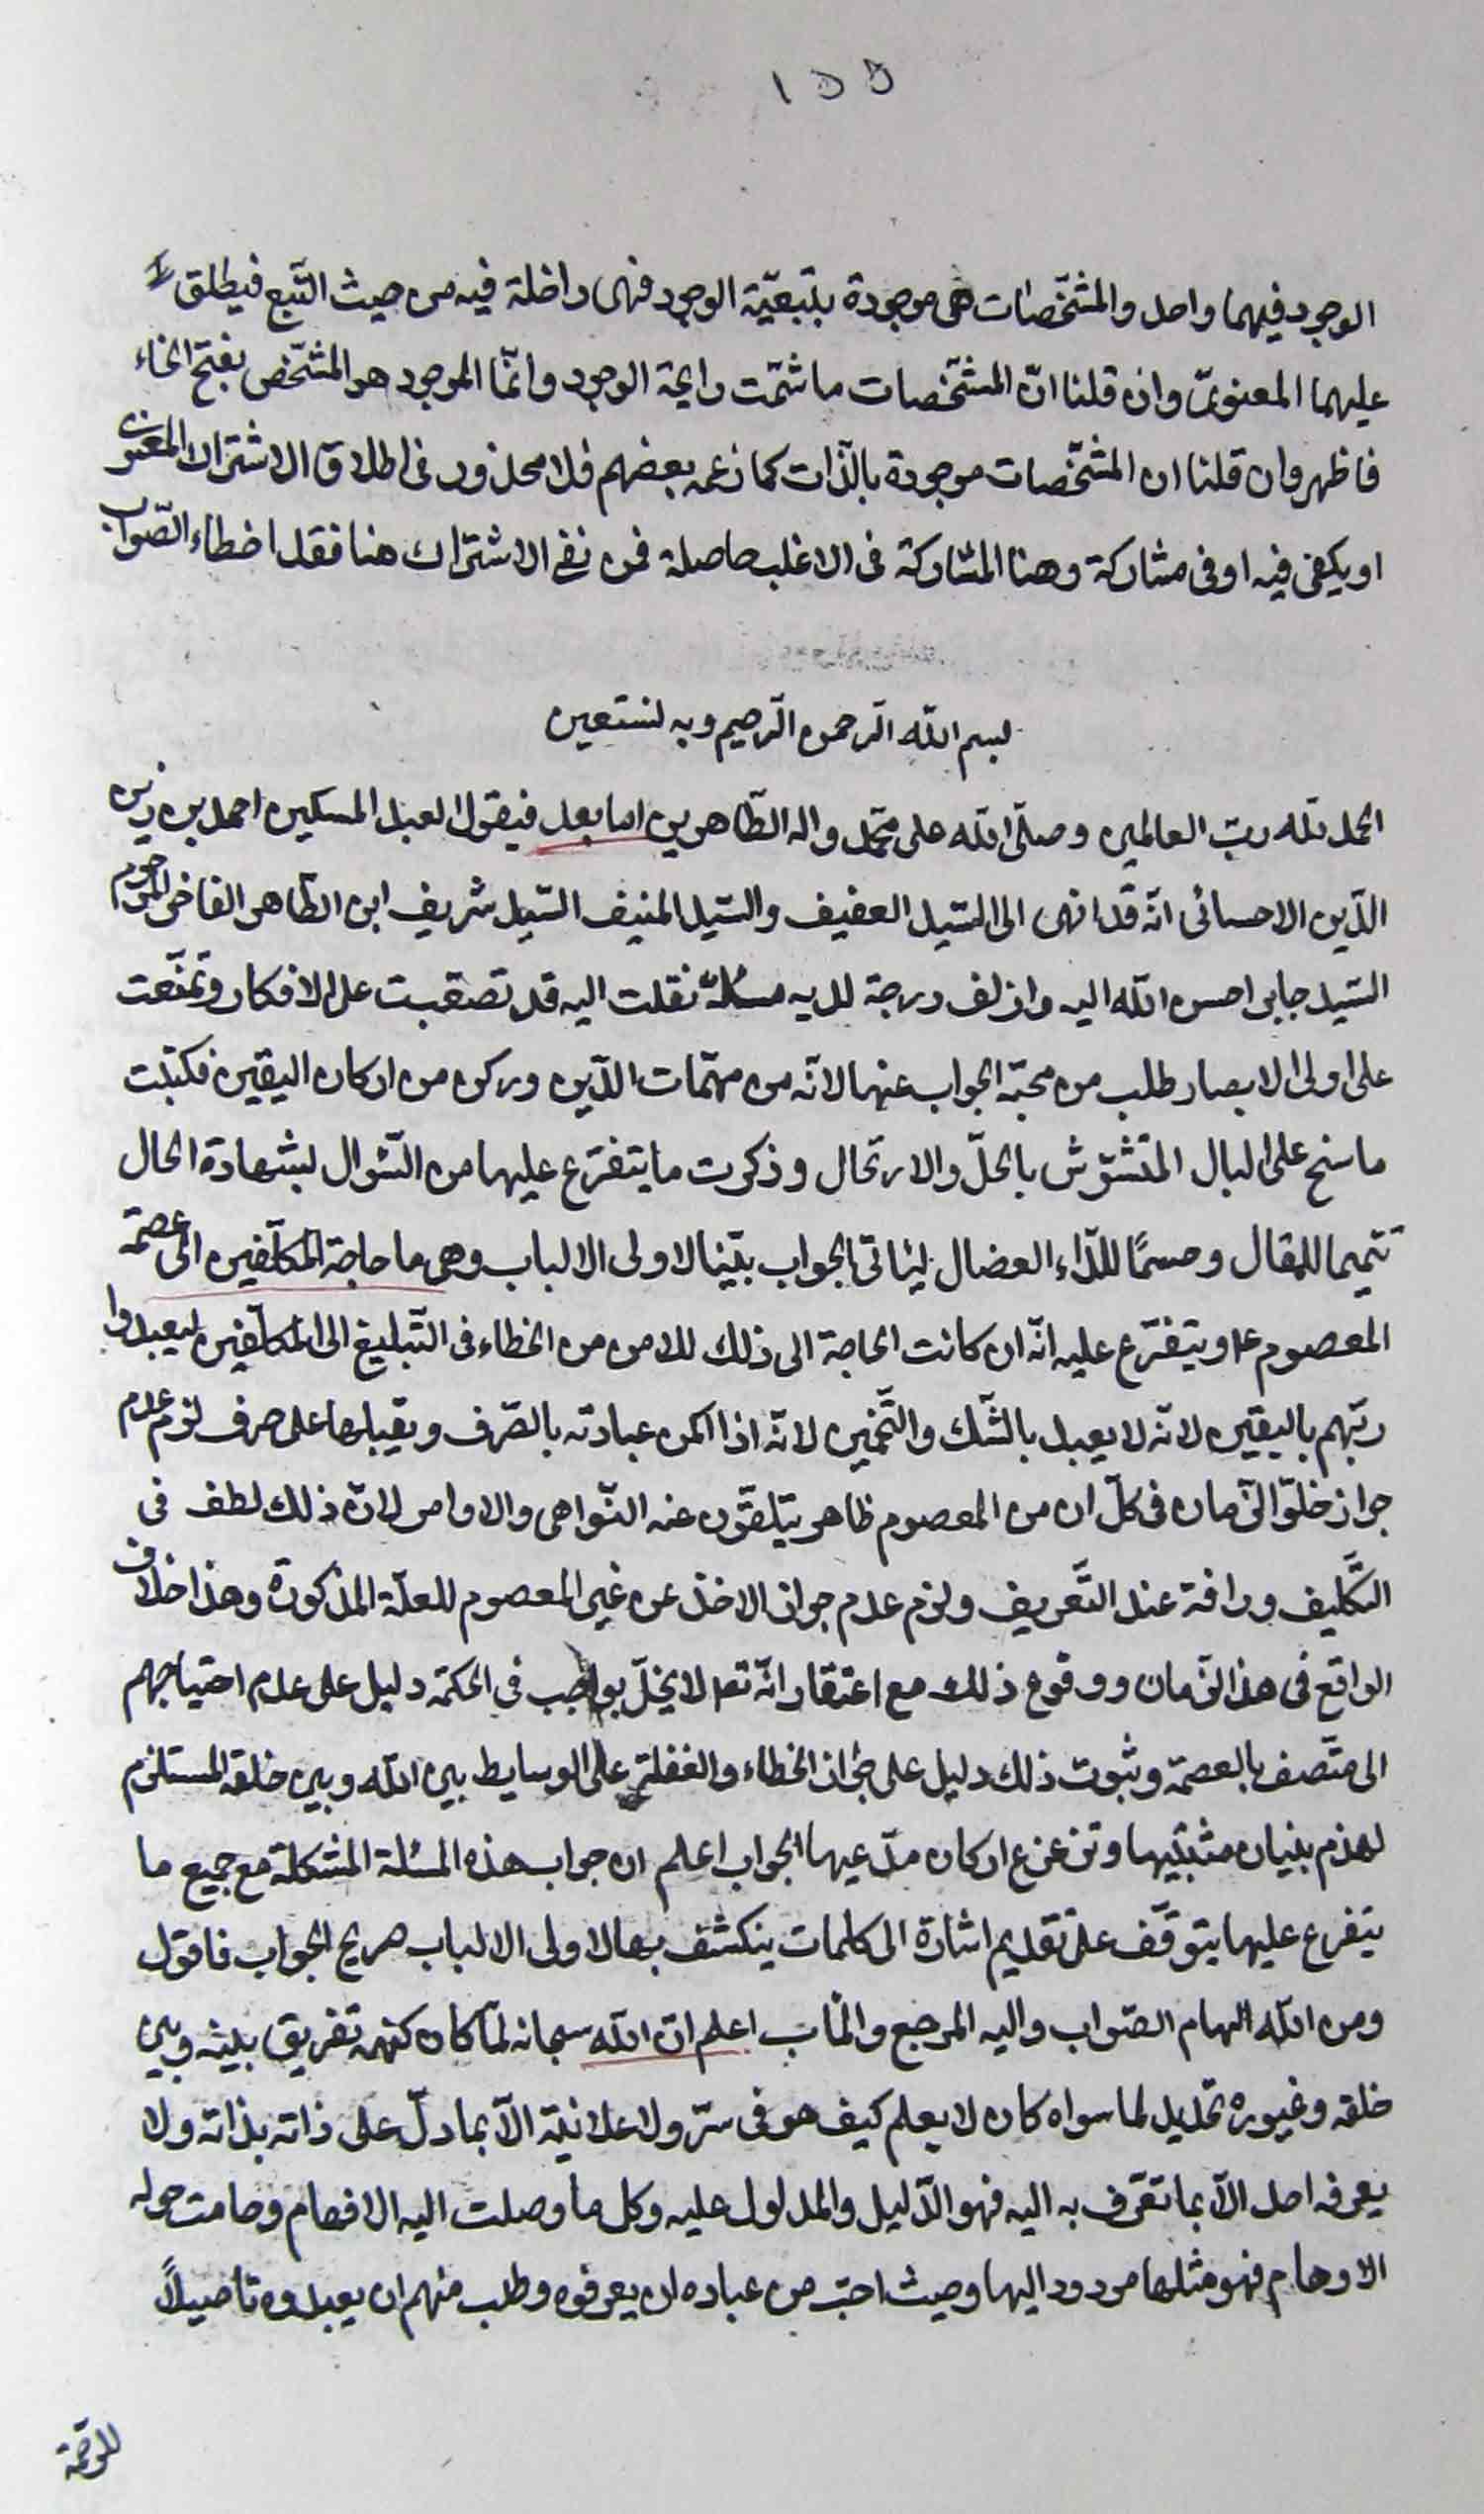 ١٥٥
الوجود فيهما واحد والمشخّصات هى موجودة بتبعيّة الوجود فهى داخلة فيه من حيث التّبع فيطلق
عليهما المعنوىّ وان قلنا انّ المشخّصات ما شمّت رايحة الوجود وانّما الموجود هو المشخّص بفتح الخاء
فاظهر وان قلنا ان المشخّصات موجودة بالذّات كما زعمه بعضهم فلا محذور فى اطلاق الاشتراك المعنوى
او يكفى فيه اوفى مشاركة وهنا المشاركة فى الاغلب حاصلة فمن نفى الاشتراك هنا فقد اخطاء الصّواب
بسم اللّه الرّحمن الرّحيم وبه نستعين
الحمد للّه ربّ العالمين وصلّى اللّه على محمّد واله الطّاهرين اما بعد فيقول العبد المسكين احمد بن زين
الدّين الاحسائى انّه قد انهى الى السّيد العفيف والسّيد المنيف السّيد شريف ابن الطّاهر الفاخر المرحوم
السّيد جابر احسن اللّه اليه وازلف درجة لديه مسئلة نقلت اليه قد تصعّبت على الافكار وتمنّعت
على اولى الابصار طلب من محبّه الجواب عنها لانّه من مهمّات الدّين وركن من اركان اليقين فكتبت
ما سنح على البال المتشوّش بالحلّ والارتحال وذكرت ما يتفرّع عليها من السّئوال بشهادة الحال
تتميما للمقال وحسمًا للدّاء العضال ليئاتى الجواب بيّنا لاولى الالباب وهى ما حاجة المكلّفين الى عصمة
المعصوم ع ويتفرّع عليه انّه ان كانت الحاجة الى ذلك للامن من الخطاء فى التّبليغ الى المكلّفين ليعبدوا
ربّهم باليقين لانّه لا يعبد بالشّك والتّخمين لانّه اذا امكن عبادته بالصّرف ويقبلها على حرف لزم عدم
جواز خلوّ الزّمان فى كلّ ان من المعصوم ظاهر يتلقّون عنه النّواهى والاوامر لانّ ذلك لطف فى
التّكليف ورافة عند التّعريف ولزم عدم جواز الاخذ عن غير المعصوم للعلّة المذكورة وهذا خلاف
الواقع فى هذا الزّمان ووقوع ذلك مع اعتقاد انّه تع لا يخلّ بواجب فى الحكمة دليل على عدم احتياجهم
الى متّصف بالعصمة وثبوت ذلك دليل على جواز الخطاء والغفلة على الوسايط بين اللّه وبين خلقه المستلزم
لهدم بنيان مثبتيها وتزعزع اركان مدّعيها الجواب اعلم ان جواب هذه المسئلة المشكلة مع جميع ما
يتفرع عليها يتوقّف على تقديم اشارة الى كلمات ينكشف بها لاولى الالباب صريح الجواب فاقول
ومن اللّه الهام الصّواب واليه المرجع والمئاب اعلم انّ اللّه سبحانه لمّا كان كنهه تفريق بينه وبين
خلقه وغيوره تحديد لما سواه كان لا يعلم كيف هو فى سرّ ولا علانية الاّ بما دلّ على ذاته بذاته ولا
يعرفه احد الاّ بما تعرّف به اليه فهو الدّليل والمدلول عليه وكل ما وصلت اليه الافهام وحامت حوله
الاوهام فهو مثلها مردود اليها وحيث احبّ من عباده ان يعرفوه وطلب منهم ان يعبدوه تاهيلاً